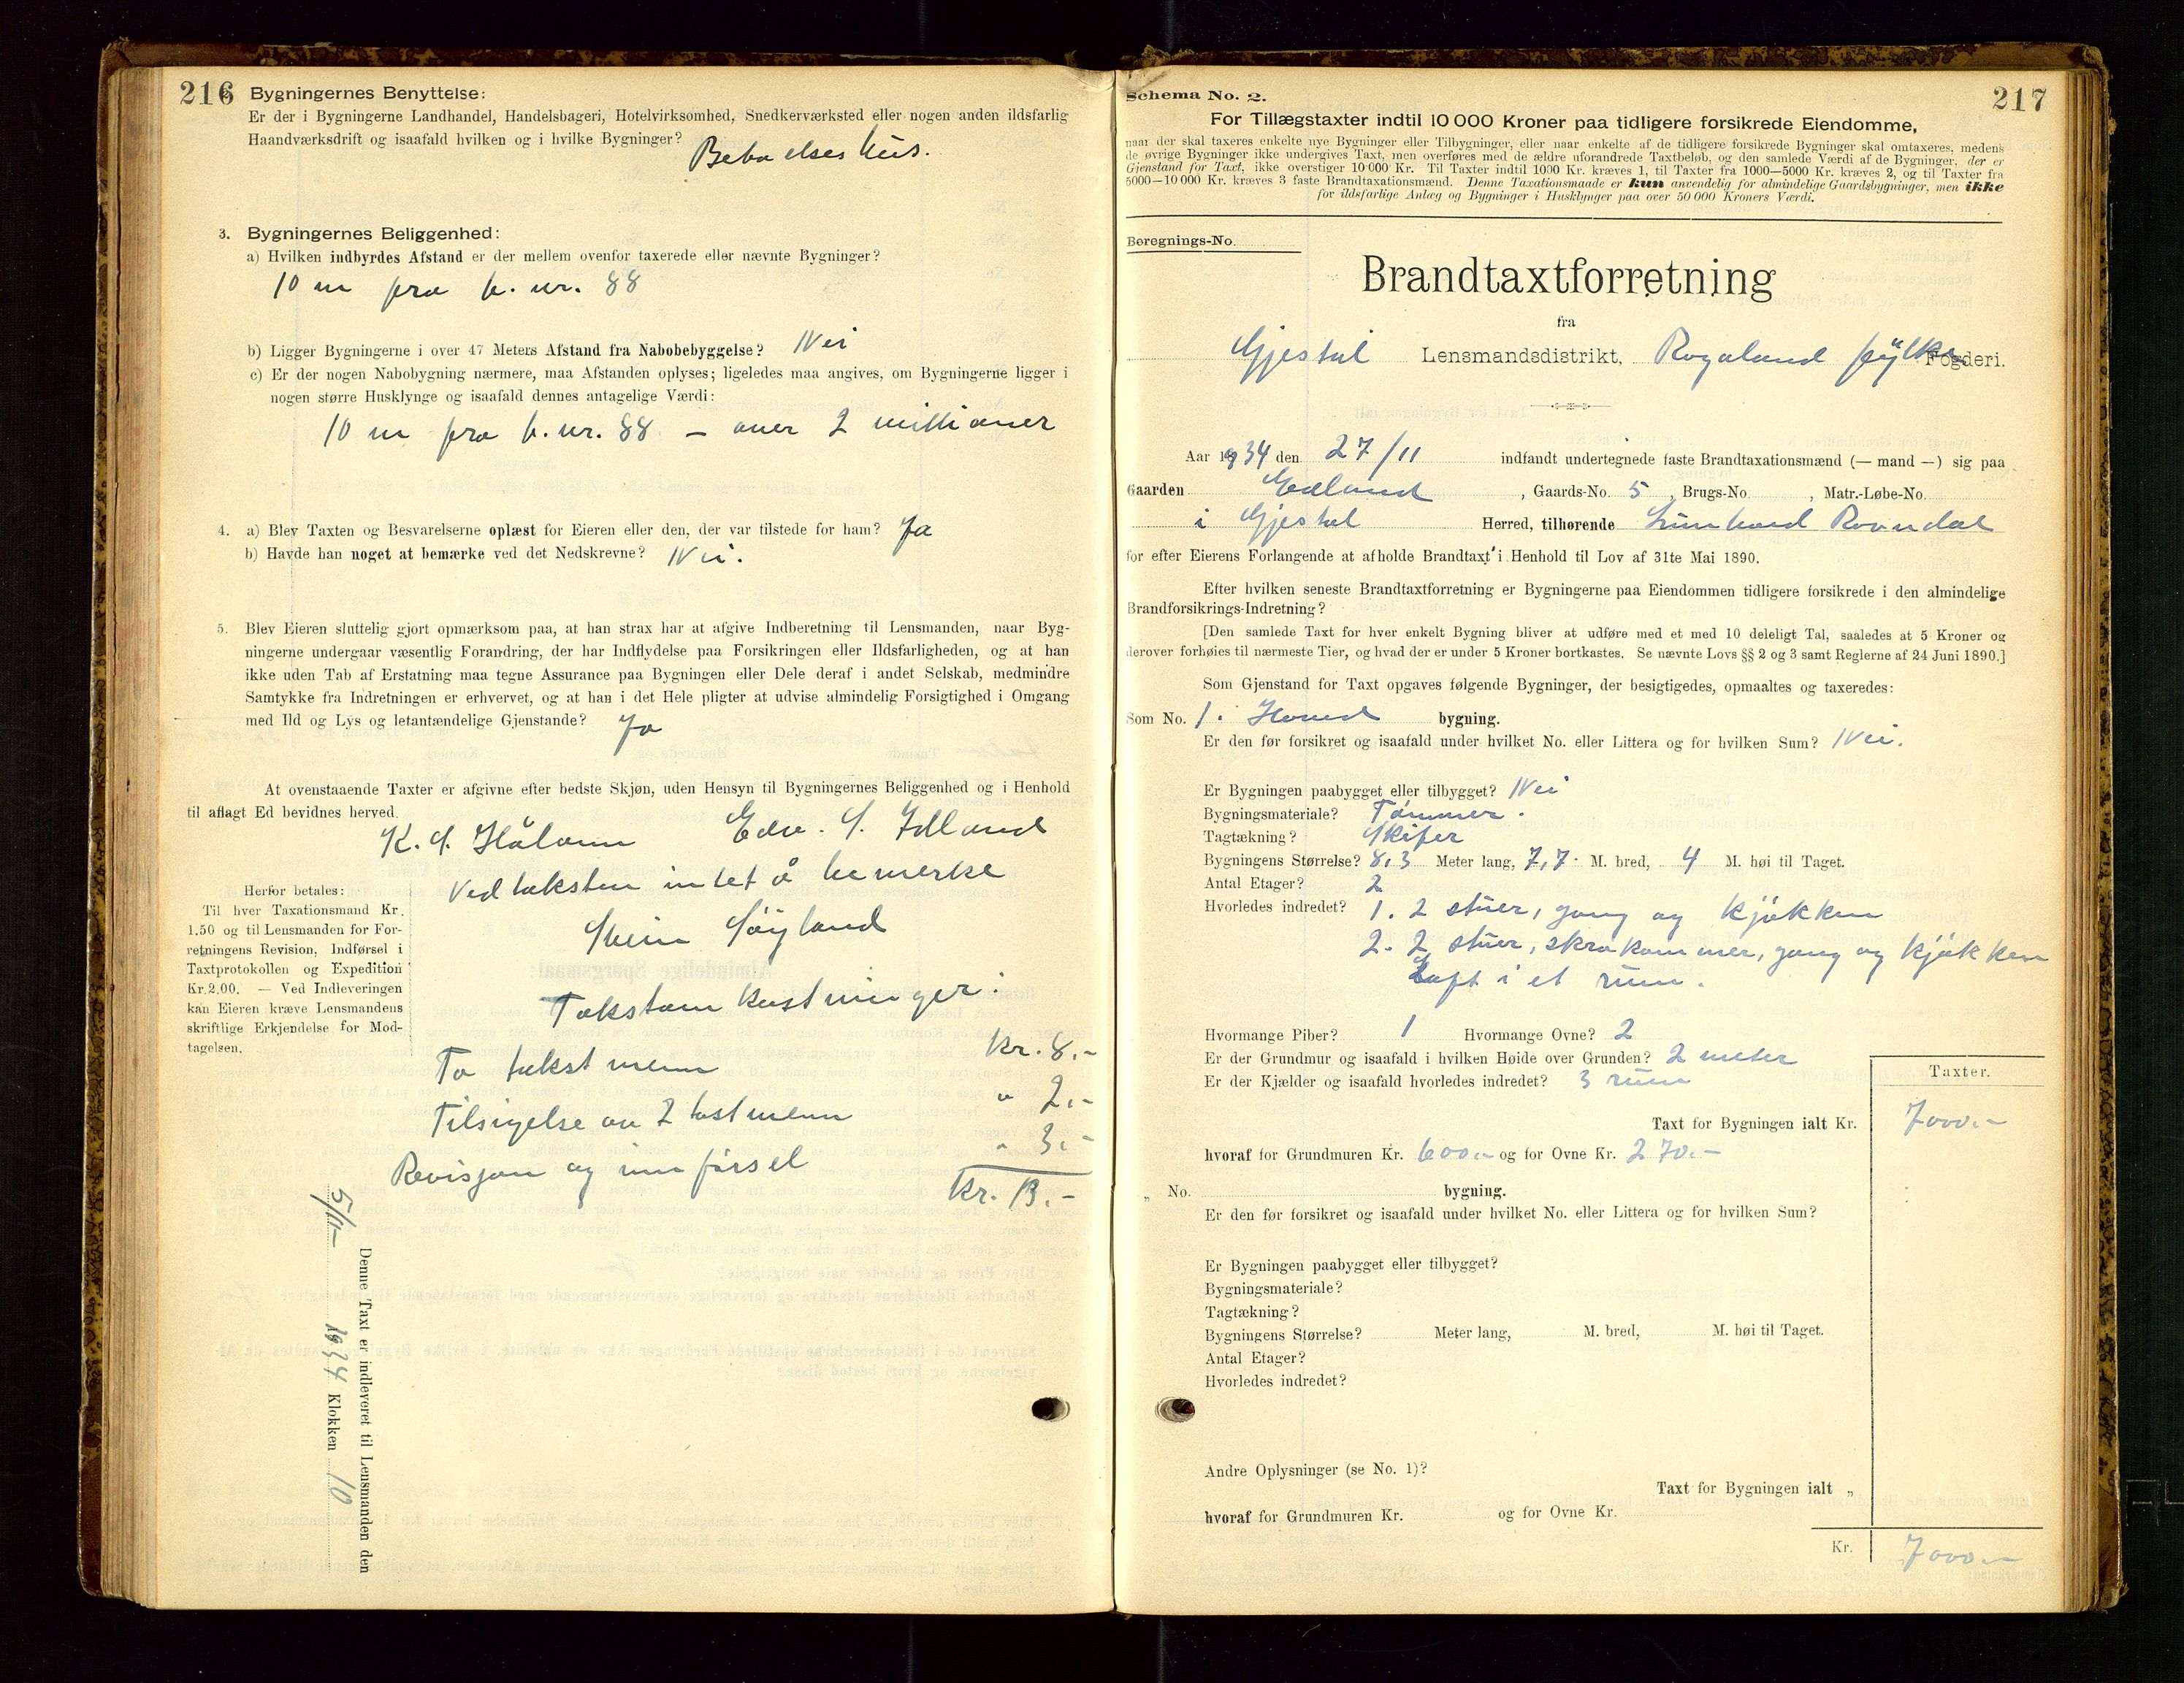 216
Bygningernes Benyttelse:
Er der i Bygningerne Landhandel, Handelsbageri, Hotelvirksomhed, Snedkerværksted eller nogen anden ildsfarlig
Haandværksdrift og isaafald hvilken og i hvilke Bygninger?
Beboelseshus.
3. Bygningernes Beliggenhed:
a) Hvilken indbyrdes Afstand er der mellem ovenfor taxerede eller nævnte Bygninger?
10 m fra b.nr. 88
b) Ligger Bygningerne i over 47 Meters Afstand fra Nabobebyggelse? Nei
c) Er der nogen Nabobygning nærmere, maa Afstanden oplyses; ligeledes maa angives, om Bygningerne ligger i
nogen større Husklynge og isaafald dennes antagelige Værdi:
10 m fra b.nr. 88 – over 2 millioner
4. a) Blev Taxten og Besvarelserne oplæst for Eieren eller den, der var tilstede for ham? Ja
b) Havde han noget at bemærke ved det Nedskrevne? Nei.
5. Blev Eieren sluttelig gjort opmærksom paa, at han strax har at afgive Indberetning til Lensmanden, naar Byg-
ningerne undergaar væsentlig Forandring, der har Indflydelse paa Forsikringen eller Ildsfarligheden, og at han
ikke uden Tab af Erstatning maa tegne Assurance paa Bygningen eller Dele deraf i andet Selskab, medmindre
Samtykke fra Indretningen er erhvervet, og at han i det Hele pligter at udvise almindelig Forsigtighed i Omgang
med Ild og Lys og letantændelige Gjenstande? Ja
At ovenstaaende Taxter er afgivne efter bedste Skjøn, uden Hensyn til Bygningernes Beliggenhed og i Henhold
til aflagt Ed bevidnes herved.
K. S. Håland Edv. S. Idland
Ved taksten intet å bemerke
Svein Søyland
Herfor betales:
Til hver Taxationsmand Kr.
1.50 og til Lensmanden for For-
retningens Revision, Indførsel i
Taxtprotokollen og Expedition
Kr. 2.00. — Ved Indleveringen
kan Eieren kræve Lensmandens
skriftlige Erkjendelse for Mod-
tagelsen.
Takstomkostninger:
To takstmenn Kr. 8.-
Tilsigelse av 2 takstmenn " 2.-
Revisjon og innførsel " 3.-
Kr. 13.-
Denne Taxt er indleveret til Lensmanden den
1934 Klokken 10
217
Schema No. 2.
For Tillægstaxter indtil 10 000 Kroner paa tidligere forsikrede Eiendomme,
naar der skal taxeres enkelte nye Bygninger eller Tilbygninger, eller naar enkelte af de tidligere forsikrede Bygninger skal omtaxeres, medens
de øvrige Bygninger ikke undergives Taxt, men overføres med de ældre uforandrede Taxtbeløb, og den samlede Værdi af de Bygninger, der er
Gjenstand for Taxt, ikke overstiger 10 000 Kr. Til Taxter indtil 1000 Kr. kræves 1, til Taxter fra 1000—5000 Kr. kræves 2, og til Taxter fra
5000—10 000 Kr. kræves 3 faste Brandtaxationsmænd. Denne Taxationsmaade er kun anvendelig for almindelige Gaardsbygninger, men ikke
for ildsfarlige Anlæg og Bygninger i Husklynger paa over 50 000 Kroners Værdi.
Beregnings-No.
Brandtaxtforretning
fra
Gjestal Lensmandsdistrikt, Rogaland fylke Fogderi.
Aar 1934 den 27/11 indfandt undertegnede faste Brandtaxationsmænd (— mand —) sig paa
Gaarden Edland, Gaards-No. 5, Brugs-No. , Matr.-Løbe-No.
i Gjestal Herred, tilhørende Rovndal
for efter Eierens Forlangende at afholde Brandtaxt i Henhold til Lov af 31te Mai 1890.
Efter hvilken seneste Brandtaxtforretning er Bygningerne paa Eiendommen tidligere forsikrede i den almindelige
Brandforsikrings-Indretning?
[Den samlede Taxt for hver enkelt Bygning bliver at udføre med et med 10 deleligt Tal, saaledes at 5 Kroner og
derover forhøies til nærmeste Tier, og hvad der er under 5 Kroner bortkastes. Se nævnte Lovs §§ 2 og 3 samt Reglerne af 24 Juni 1890.]
Som Gjenstand for Taxt opgaves følgende Bygninger, der besigtigedes, opmaaltes og taxeredes:
Som No. 1. Hoved bygning.
Er den før forsikret og isaafald under hvilket No. eller Littera og for hvilken Sum? Nei.
Er Bygningen paabygget eller tilbygget? Nei
Bygningsmateriale? Tømmer.
Tagtækning? Skifer
Bygningens Størrelse? 8,3 Meter lang, 7,7 M. bred, 4 M. høi til Taget.
Antal Etager? 2
Hvorledes indredet? 1. 2 stuer, gang og kjøkken
2. 2 stuer, skråkammer, gang og kjøkken
Loft i et rum.
Hvormange Piber? 1 Hvormange Ovne? 2
Er der Grundmur og isaafald i hvilken Høide over Grunden? 2 meter
Er der Kjælder og isaafald hvorledes indredet? 3 rum
Taxter.
Taxt for Bygningen ialt Kr. 7000.-
hvoraf for Grundmuren Kr. 600.- og for Ovne Kr. 270.-
„ No. bygning.
Er den før forsikret og isaafald under hvilket No. eller Littera og for hvilken Sum?
Er Bygningen paabygget eller tilbygget?
Bygningsmateriale?
Tagtækning?
Bygningens Størrelse? Meter lang, M. bred, M. høi til Taget.
Antal Etager?
Hvorledes indredet?
Andre Oplysninger (se No. 1)?
Taxt for Bygningen ialt „
hvoraf for Grundmuren Kr. og for Ovne Kr.
Kr. 7000.-